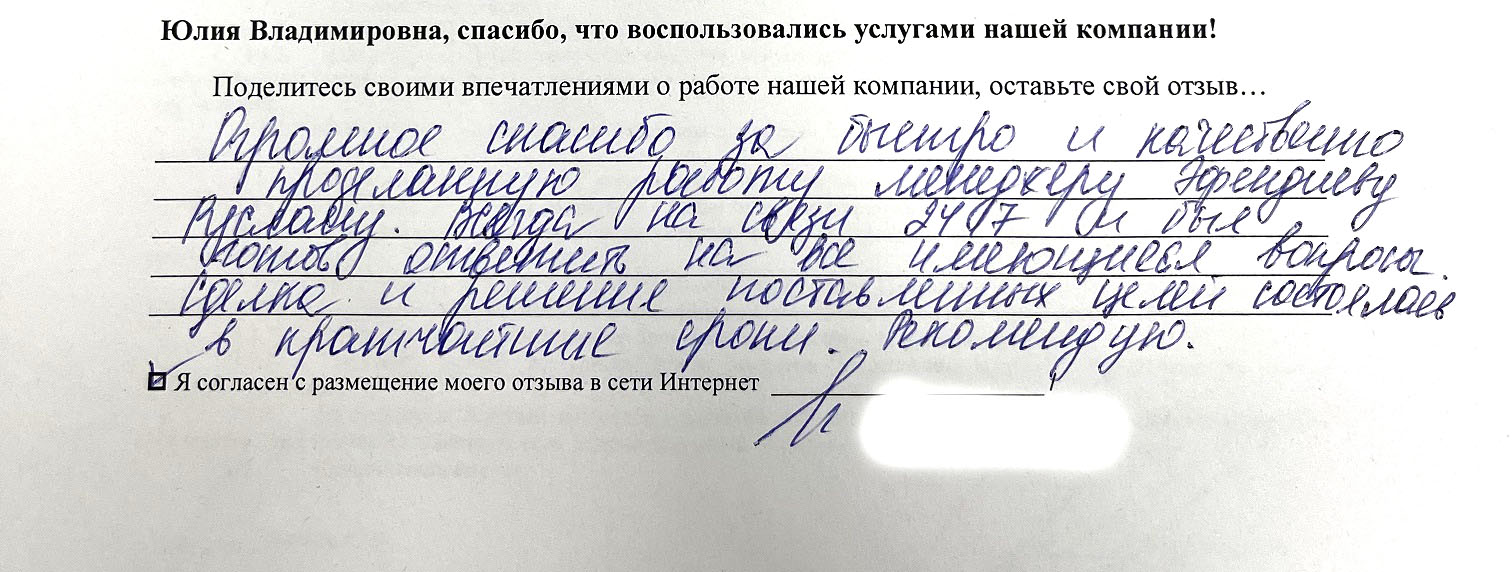 Юлия Владимировна, спасибо, что воспользовались услугами нашей компании!
Поделитесь своими впечатлениями о работе нашей компании, оставьте свой отзыв…
Огромное спасибо за быстро и качественно
проделанную работу менеджеру Эфендиеву
Руслану. Всегда на связи 24/7 и был
готов ответить на все имеющиеся вопросы.
Сделка и решение поставленных целей состоялась
в кратчайшие сроки. Рекомендую.
Я согласен с размещение моего отзыва в сети Интернет